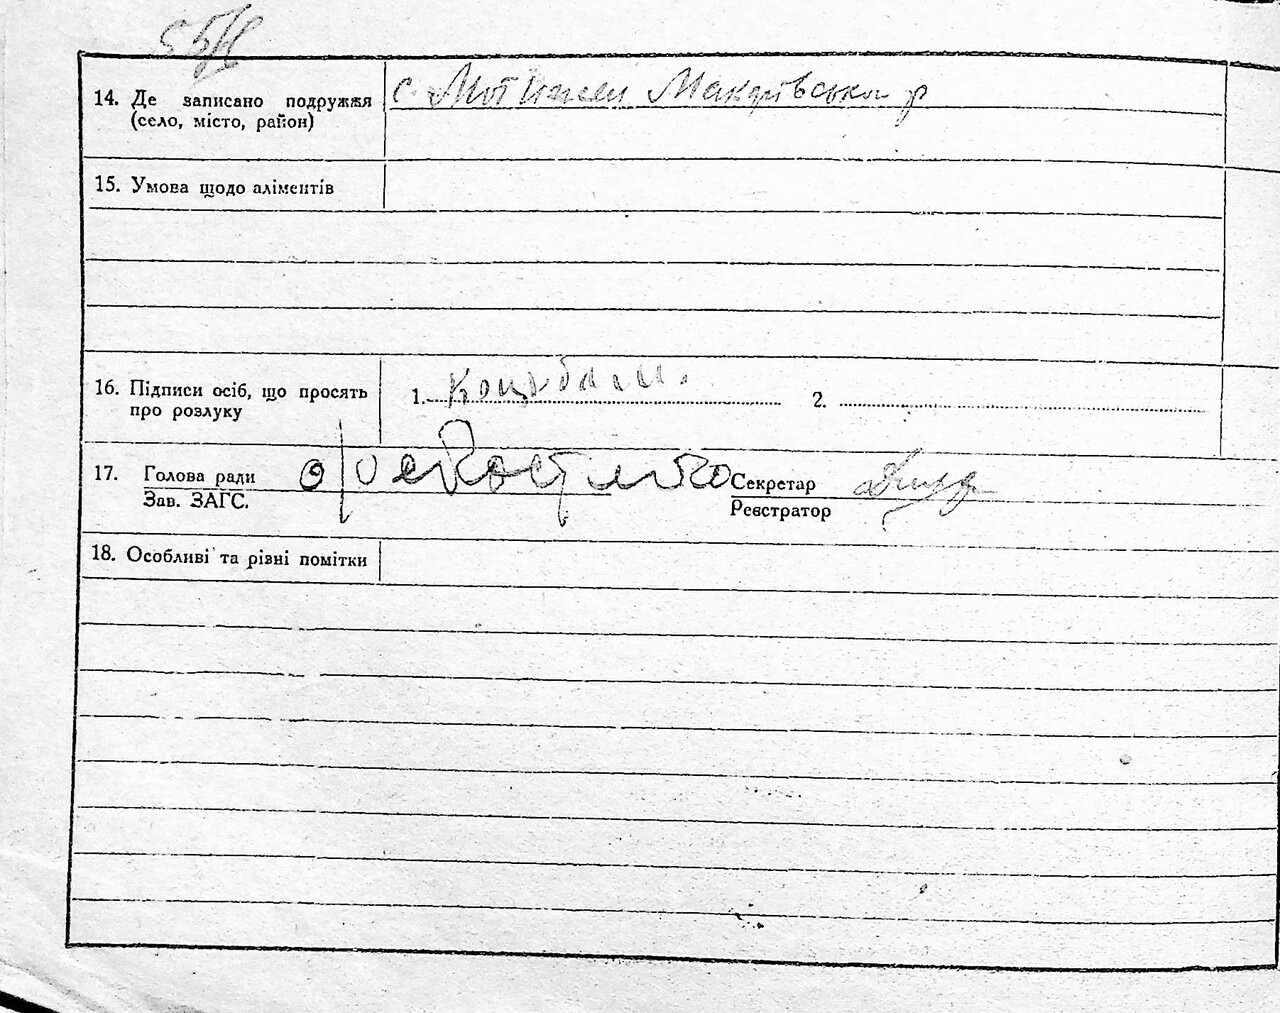 14. Де записано подружжя
(село, місто, район)
с. Мотижин Макарівськи р
15. Умова щодо аліментів
16. Підписи осіб, що просять
про розлуку
1. Коцюба
2.
17. Голова ради
Зав. ЗАГС.
Секретар
Реєстратор
18. Особливі та різні помітки